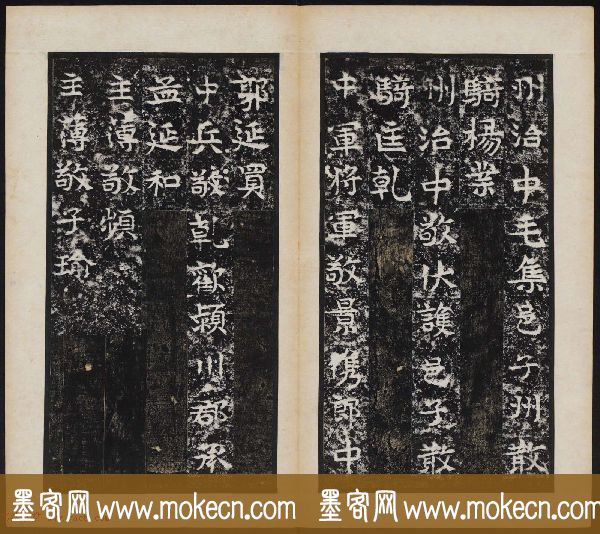 州治中毛集邑子州散
騎楊業
州治中敬伏護邑子散
騎匡乾
中軍將軍敬景儁郎中
郭延買
中兵敬乾歡潁川郡丞
孟延和
主薄敬頻
主薄敬子瑜
墨客网 www.mokecn.com 墨客网 www.mokecn.com